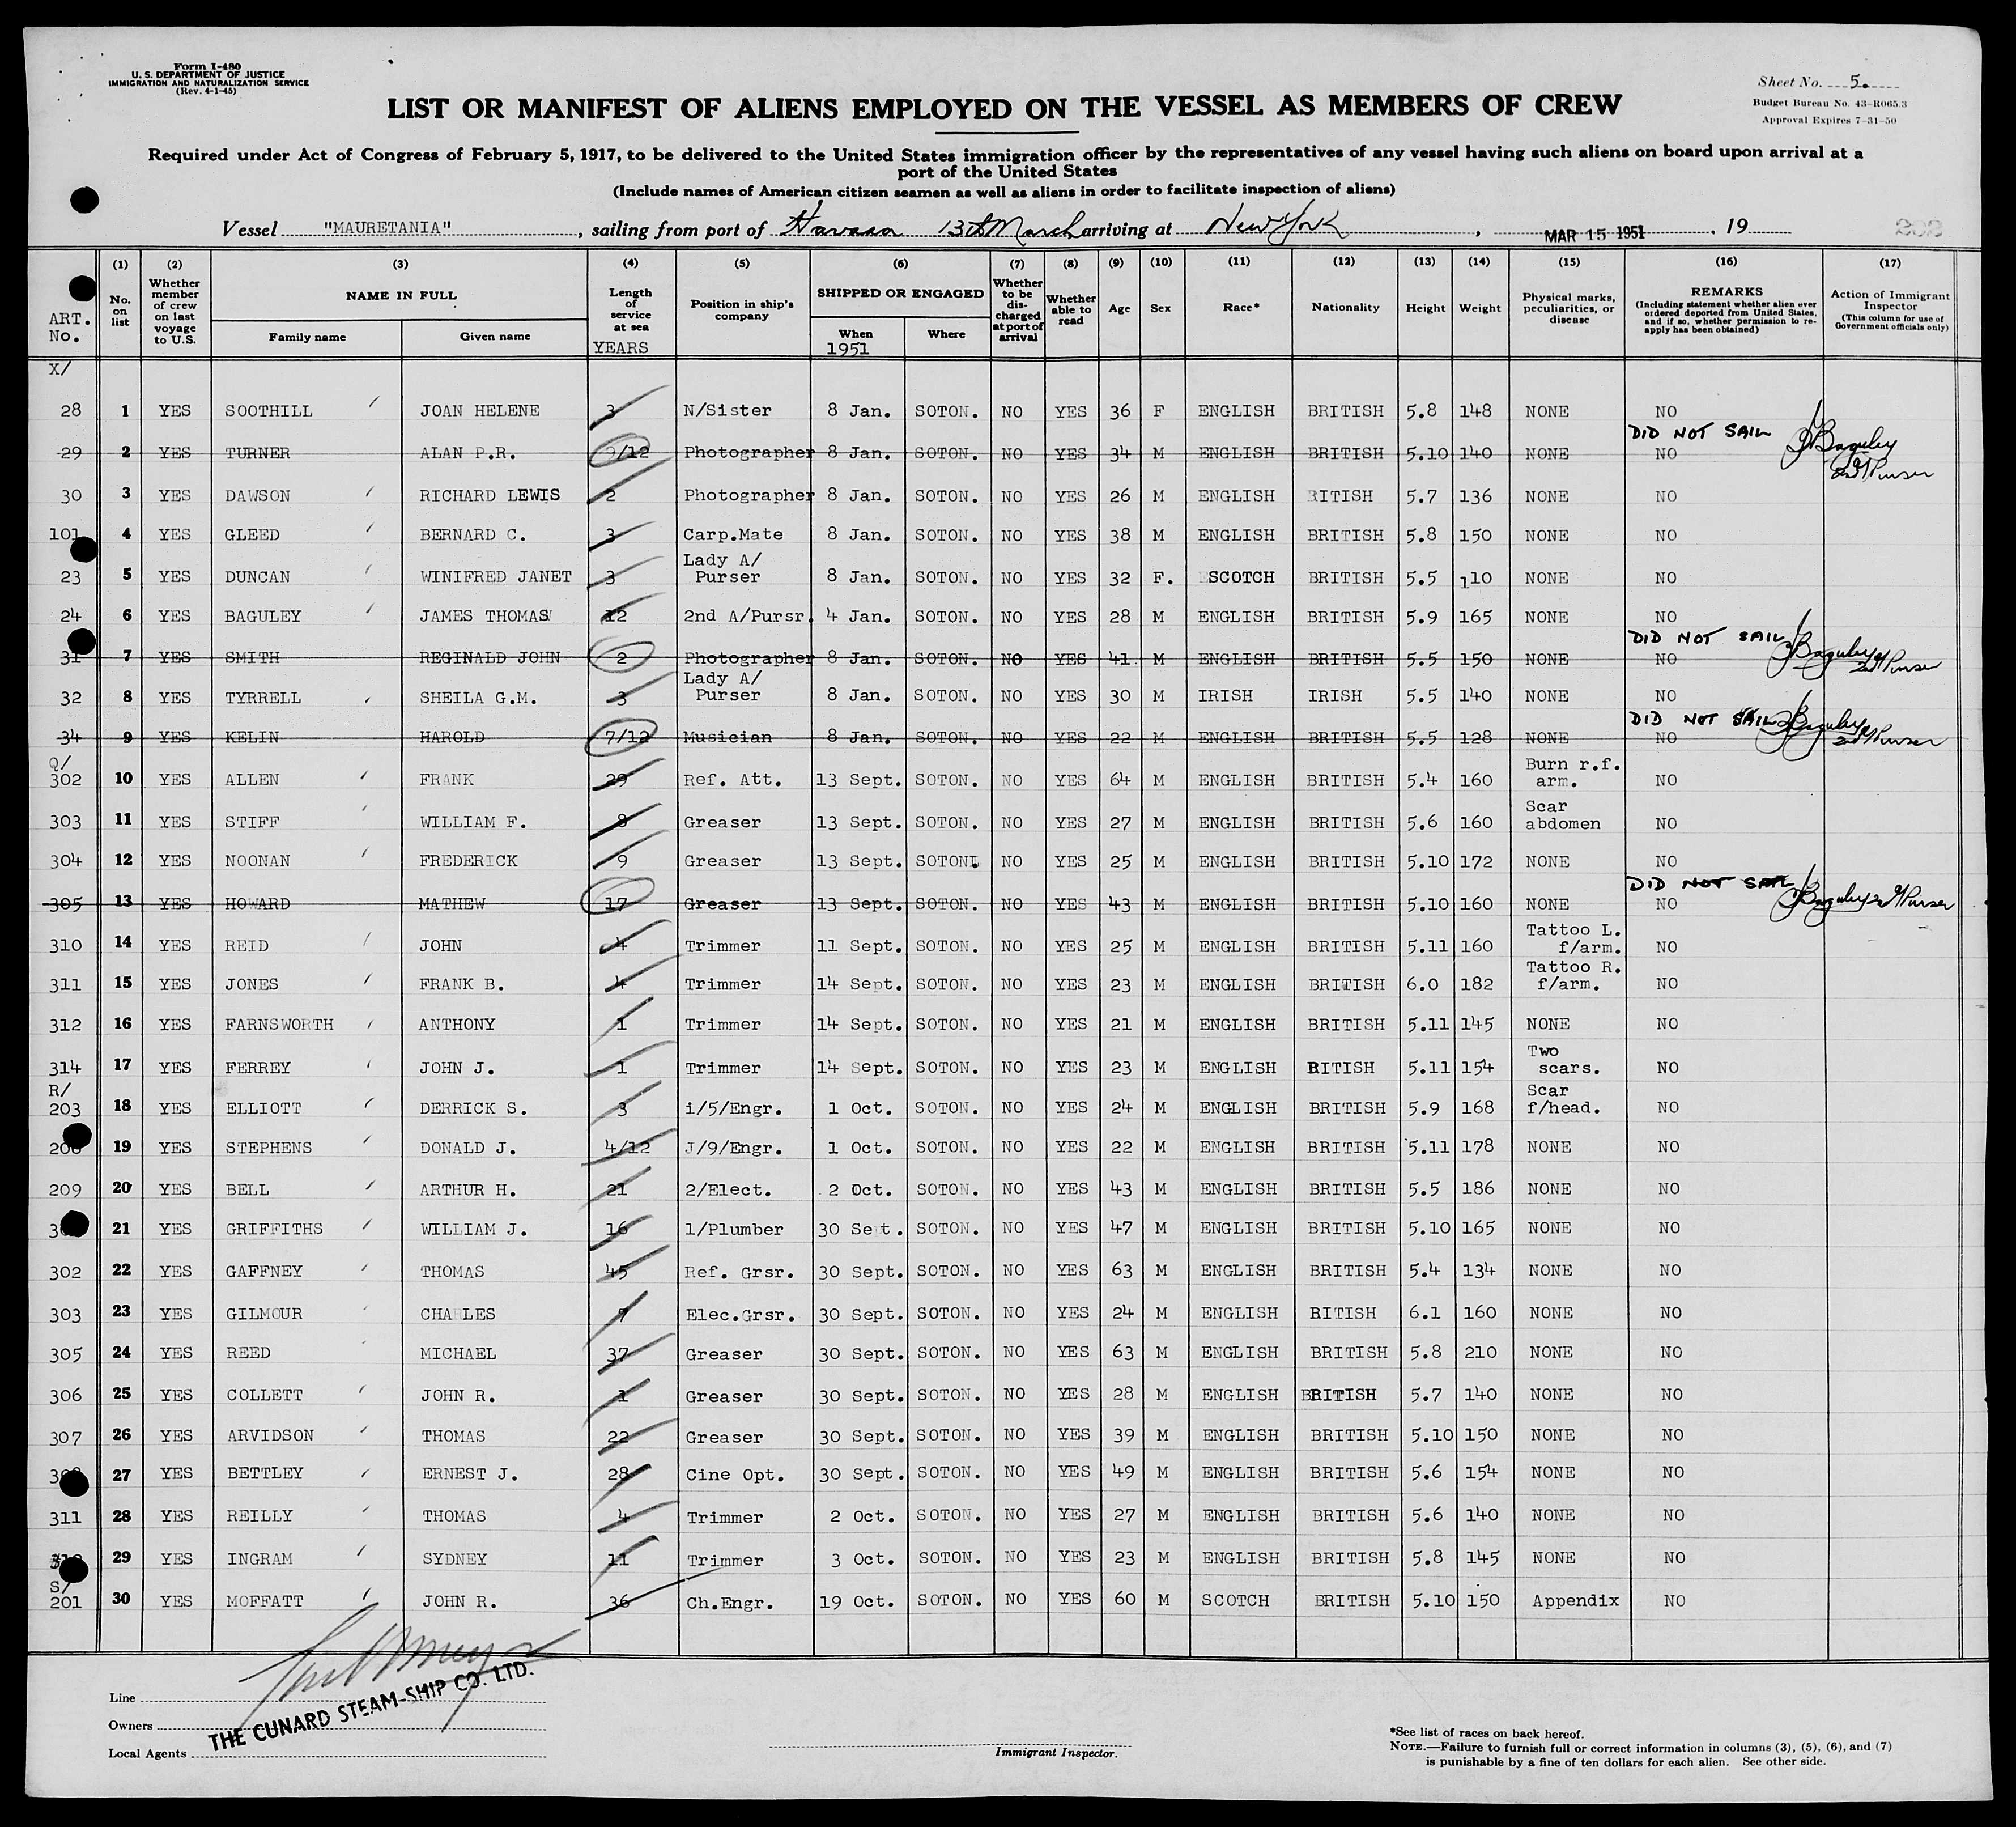 Form I-480
U. S. DEPARTMENT OF JUSTICE
IMMIGRATION AND NATURALIZATION SERVICE
(Rev. 4-1-45)
Sheet No. 5.
Budget Bureau No. 43-R065.3
Approval Expires 7-31-50
LIST OR MANIFEST OF ALIENS EMPLOYED ON THE VESSEL AS MEMBERS OF CREW
Required under Act of Congress of February 5, 1917, to be delivered to the United States immigration officer by the representatives of any vessel having such aliens on board upon arrival at a
port of the United States
(Include names of American citizen seamen as well as aliens in order to facilitate inspection of aliens)
Vessel "MAURETANIA", sailing from port of Havana 13th March arriving at New York, MAR 15 1951, 19
ART. No.
(1) No. on list
(2) Whether member of crew on last voyage to U.S.
(3) NAME IN FULL
Family name Given name
(4) Length of service at sea
YEARS
(5) Position in ship's company
(6) SHIPPED OR ENGAGED
When Where
1951
(7) Whether to be discharged at port of arrival
(8) Whether able to read
(9) Age
(10) Sex
(11) Race*
(12) Nationality
(13) Height
(14) Weight
(15) Physical marks, peculiarities, or disease
(16) REMARKS
(Including statement whether alien ever ordered deported from United States, and if so, whether permission to re-apply has been obtained)
(17) Action of Immigrant Inspector
(This column for use of Government officials only)
X/
28 1 YES SOOTHILL JOAN HELENE 3 N/Sister 8 Jan. SOTON. NO YES 36 F ENGLISH BRITISH 5.8 148 NONE NO
DID NOT SAIL JBaguley 2nd A/Purser
29 2 YES TURNER ALAN P.R. 9/12 Photographer 8 Jan. SOTON. NO YES 34 M ENGLISH BRITISH 5.10 140 NONE NO
30 3 YES DAWSON RICHARD LEWIS 2 Photographer 8 Jan. SOTON. NO YES 26 M ENGLISH RITISH 5.7 136 NONE NO
101 4 YES GLEED BERNARD C. 3 Carp.Mate 8 Jan. SOTON. NO YES 38 M ENGLISH BRITISH 5.8 150 NONE NO
23 5 YES DUNCAN WINIFRED JANET 3 Lady A/ Purser 8 Jan. SOTON. NO YES 32 F. SCOTCH BRITISH 5.5 110 NONE NO
24 6 YES BAGULEY JAMES THOMAS 12 2nd A/Pursr. 4 Jan. SOTON. NO YES 28 M ENGLISH BRITISH 5.9 165 NONE NO
DID NOT SAIL JBaguley 2nd A/Purser
31 7 YES SMITH REGINALD JOHN 2 Photographer 8 Jan. SOTON. NO YES 41 M ENGLISH BRITISH 5.5 150 NONE NO
32 8 YES TYRRELL SHEILA G.M. 3 Lady A/ Purser 8 Jan. SOTON. NO YES 30 M IRISH IRISH 5.5 140 NONE NO
DID NOT SAIL JBaguley 2nd A/Purser
34 9 YES KELIN HAROLD 7/12 Musician 8 Jan. SOTON. NO YES 22 M ENGLISH BRITISH 5.5 128 NONE NO
Q/
302 10 YES ALLEN FRANK 29 Ref. Att. 13 Sept. SOTON. NO YES 64 M ENGLISH BRITISH 5.4 160 Burn r.f. arm. NO
303 11 YES STIFF WILLIAM F. 8 Greaser 13 Sept. SOTON. NO YES 27 M ENGLISH BRITISH 5.6 160 Scar abdomen NO
304 12 YES NOONAN FREDERICK 9 Greaser 13 Sept. SOTON. NO YES 25 M ENGLISH BRITISH 5.10 172 NONE NO
DID NOT SAIL JBaguley 2nd A/Purser
305 13 YES HOWARD MATHEW 17 Greaser 13 Sept. SOTON. NO YES 43 M ENGLISH BRITISH 5.10 160 NONE NO
310 14 YES REID JOHN 4 Trimmer 11 Sept. SOTON. NO YES 25 M ENGLISH BRITISH 5.11 160 Tattoo L. f/arm. NO
311 15 YES JONES FRANK B. 4 Trimmer 14 Sept. SOTON. NO YES 23 M ENGLISH BRITISH 6.0 182 Tattoo R. f/arm. NO
312 16 YES FARNSWORTH ANTHONY 1 Trimmer 14 Sept. SOTON. NO YES 21 M ENGLISH BRITISH 5.11 145 NONE NO
314 17 YES FERREY JOHN J. 1 Trimmer 14 Sept. SOTON. NO YES 23 M ENGLISH RITISH 5.11 154 Two scars. NO
R/
203 18 YES ELLIOTT DERRICK S. 3 i/5/Engr. 1 Oct. SOTON. NO YES 24 M ENGLISH BRITISH 5.9 168 Scar f/head. NO
19 YES STEPHENS DONALD J. 4/12 J/9/Engr. 1 Oct. SOTON. NO YES 22 M ENGLISH BRITISH 5.11 178 NONE NO
209 20 YES BELL ARTHUR H. 21 2/Elect. 2 Oct. SOTON. NO YES 43 M ENGLISH BRITISH 5.5 186 NONE NO
21 YES GRIFFITHS WILLIAM J. 16 1/Plumber 30 Se t. SOTON. NO YES 47 M ENGLISH BRITISH 5.10 165 NONE NO
302 22 YES GAFFNEY THOMAS 45 Ref. Grsr. 30 Sept. SOTON. NO YES 63 M ENGLISH BRITISH 5.4 134 NONE NO
303 23 YES GILMOUR CHARLES 7 Elec.Grsr. 30 Sept. SOTON. NO YES 24 M ENGLISH RITISH 6.1 160 NONE NO
305 24 YES REED MICHAEL 37 Greaser 30 Sept. SOTON. NO YES 63 M ENGLISH BRITISH 5.8 210 NONE NO
306 25 YES COLLETT JOHN R. 1 Greaser 30 Sept. SOTON. NO YES 28 M ENGLISH BRITISH 5.7 140 NONE NO
307 26 YES ARVIDSON THOMAS 22 Greaser 30 Sept. SOTON. NO YES 39 M ENGLISH BRITISH 5.10 150 NONE NO
27 YES BETTLEY ERNEST J. 28 Cine Opt. 30 Sept. SOTON. NO YES 49 M ENGLISH BRITISH 5.6 154 NONE NO
311 28 YES REILLY THOMAS 4 Trimmer 2 Oct. SOTON. NO YES 27 M ENGLISH BRITISH 5.6 140 NONE NO
29 YES INGRAM SYDNEY 11 Trimmer 3 Oct. SOTON. NO YES 23 M ENGLISH BRITISH 5.8 145 NONE NO
S/
201 30 YES MOFFATT JOHN R. 36 Ch.Engr. 19 Oct. SOTON. NO YES 60 M SCOTCH BRITISH 5.10 150 Appendix NO
Line
Owners
Local Agents
THE CUNARD STEAM-SHIP CO. LTD.
Immigrant Inspector.
*See list of races on back hereof.
NOTE.—Failure to furnish full or correct information in columns (3), (5), (6), and (7)
is punishable by a fine of ten dollars for each alien. See other side.